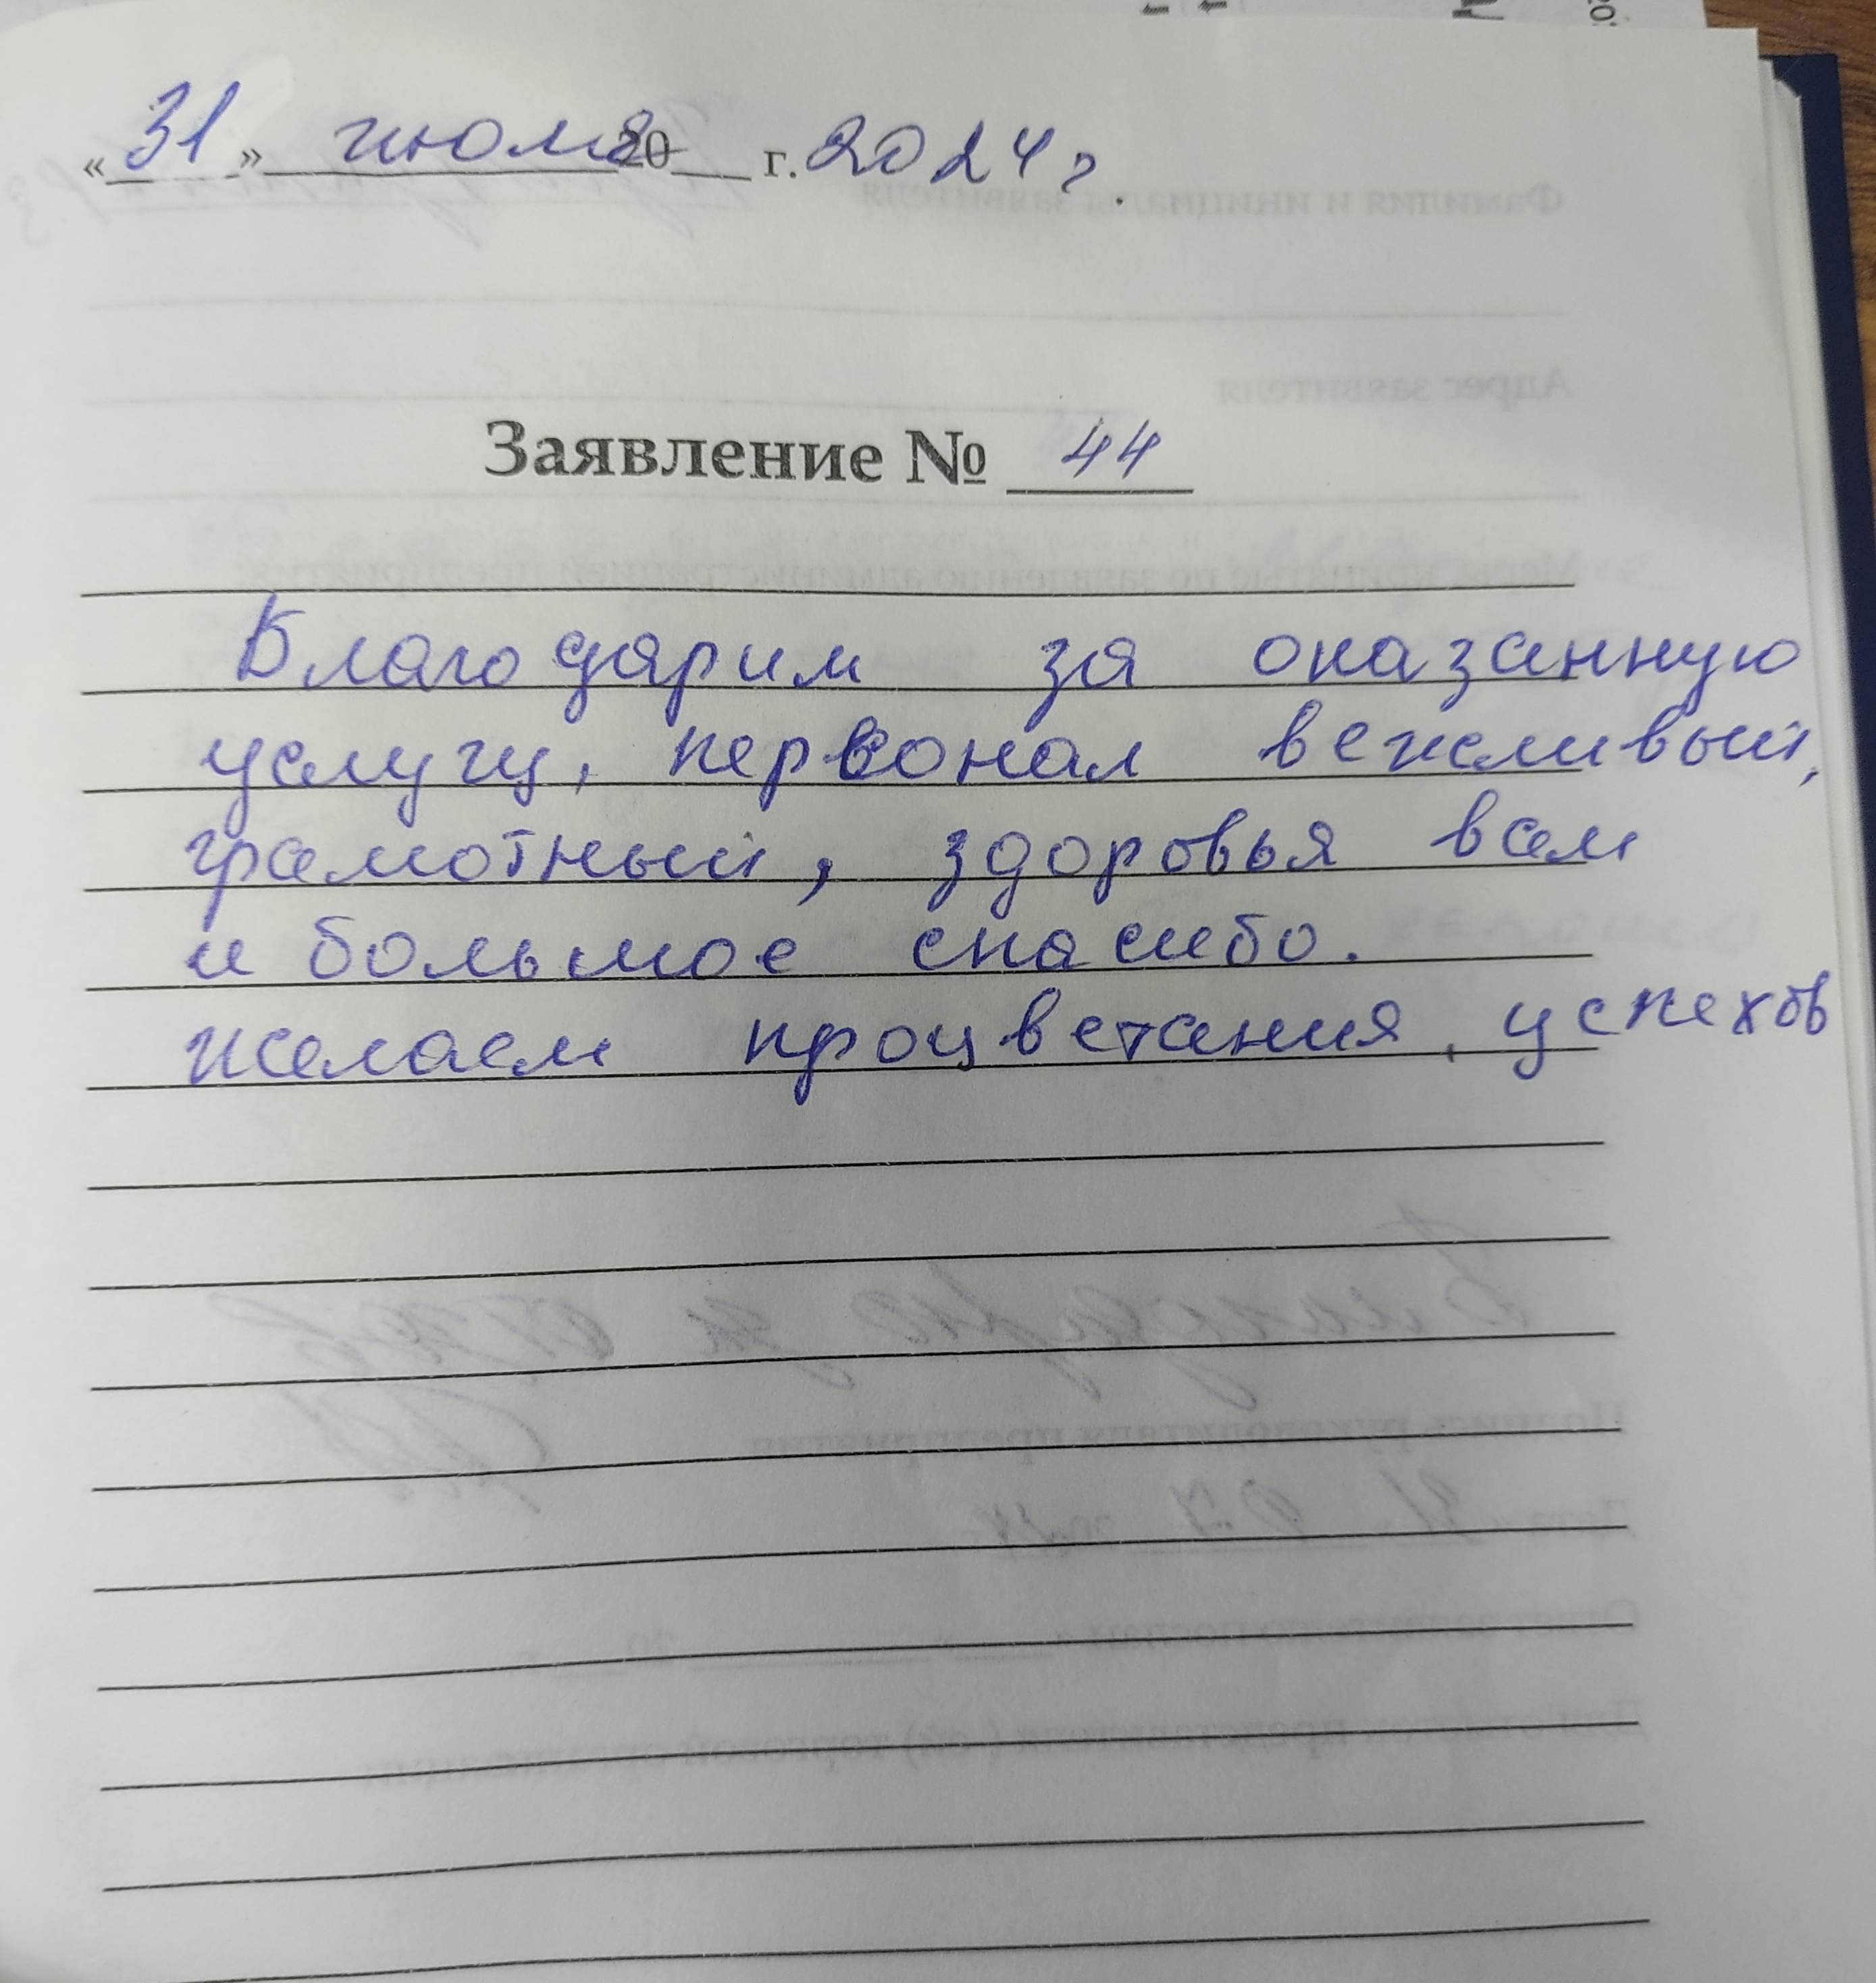 «31» июля 20__ г. 2024 г.
Заявление № 44
Благодарим за оказанную
услугу, персонал вежливый,
грамотный, здоровья всем
и большое спасибо.
желаем процветания, успехов